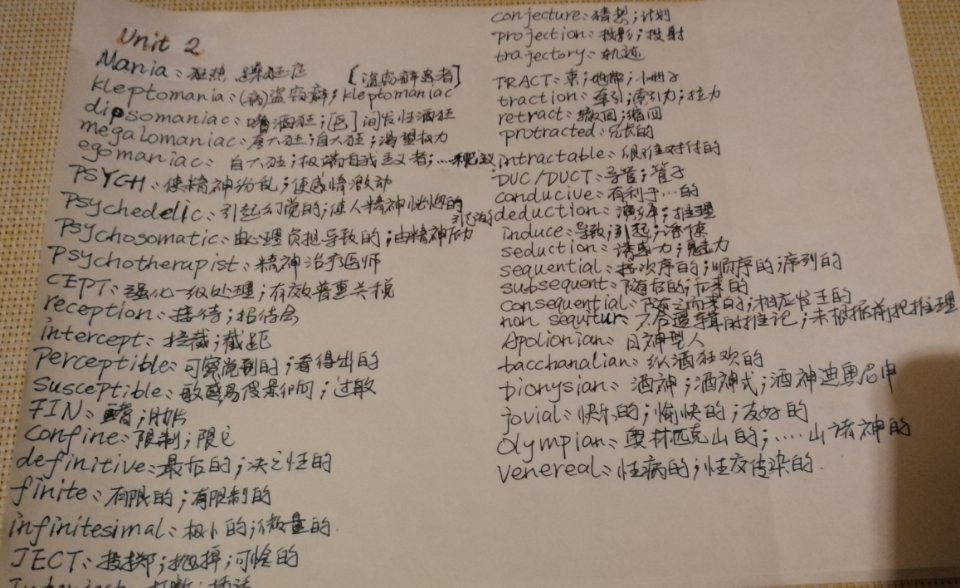 Unit 2
Mania: 狂热 躁狂症
kleptomania: (病)盗窃癖; kleptomaniac [盗窃癖患者]
dipsomaniac: 嗜酒狂; [医] 间发性酒狂
megalomaniac: 夸大狂; 自大狂; 渴望权力
egomaniac: 自大狂; 极端自我主义者;
PSYCH: 使精神纷乱; 使感情激动
Psychedelic: 引起幻觉的; 使人精神恍惚的
Psychosomatic: 由心理负担导致的; 由精神压力引起的
Psychotherapist: 精神治疗医师
CEPT: 有效普惠关税
reception: 接待; 招待会
intercept: 拦截; 截距
perceptible: 可察觉到的; 看得出的
susceptible: 敏感 过敏
FIN: 鳍;
Confine: 限制; 限定
definitive: 最后的; 决定性的
finite: 有限的; 有限制的
infinitesimal: 极小的; 微量的.
JECT: 投掷; 抛掉; 可怜的
conjecture: 猜想; 计划
projection: 投影; 投射
trajectory: 轨迹
TRACT: 束; 地带;
traction: 牵引; 牵引力; 拉力
retract: 撤回; 缩回
protracted: 冗长的
intractable: 很难对付的
DUC/DUCT: 导管; 管子
conducive: 有利于…的
deduction: 演绎; 推理
induce: 导致; 引起; 诱使
seduction: 诱惑力; 魅力
sequential: 按次序的; 顺序的; 序列的
subsequent: 随后的; 后来的
consequential: 随之而来的; 相应发生的
non sequitur: 不合逻辑的推论; 未根据前提推理
Apolionian: 日神型人
bacchanalian: 纵酒狂欢的
Dionysian: 酒神; 酒神式; 酒神迪奥尼申
jovial: 快乐的; 愉快的; 友好的
Olympian: 奥林匹克山的; ……山诸神的
venereal: 性病的; 性交传染的.